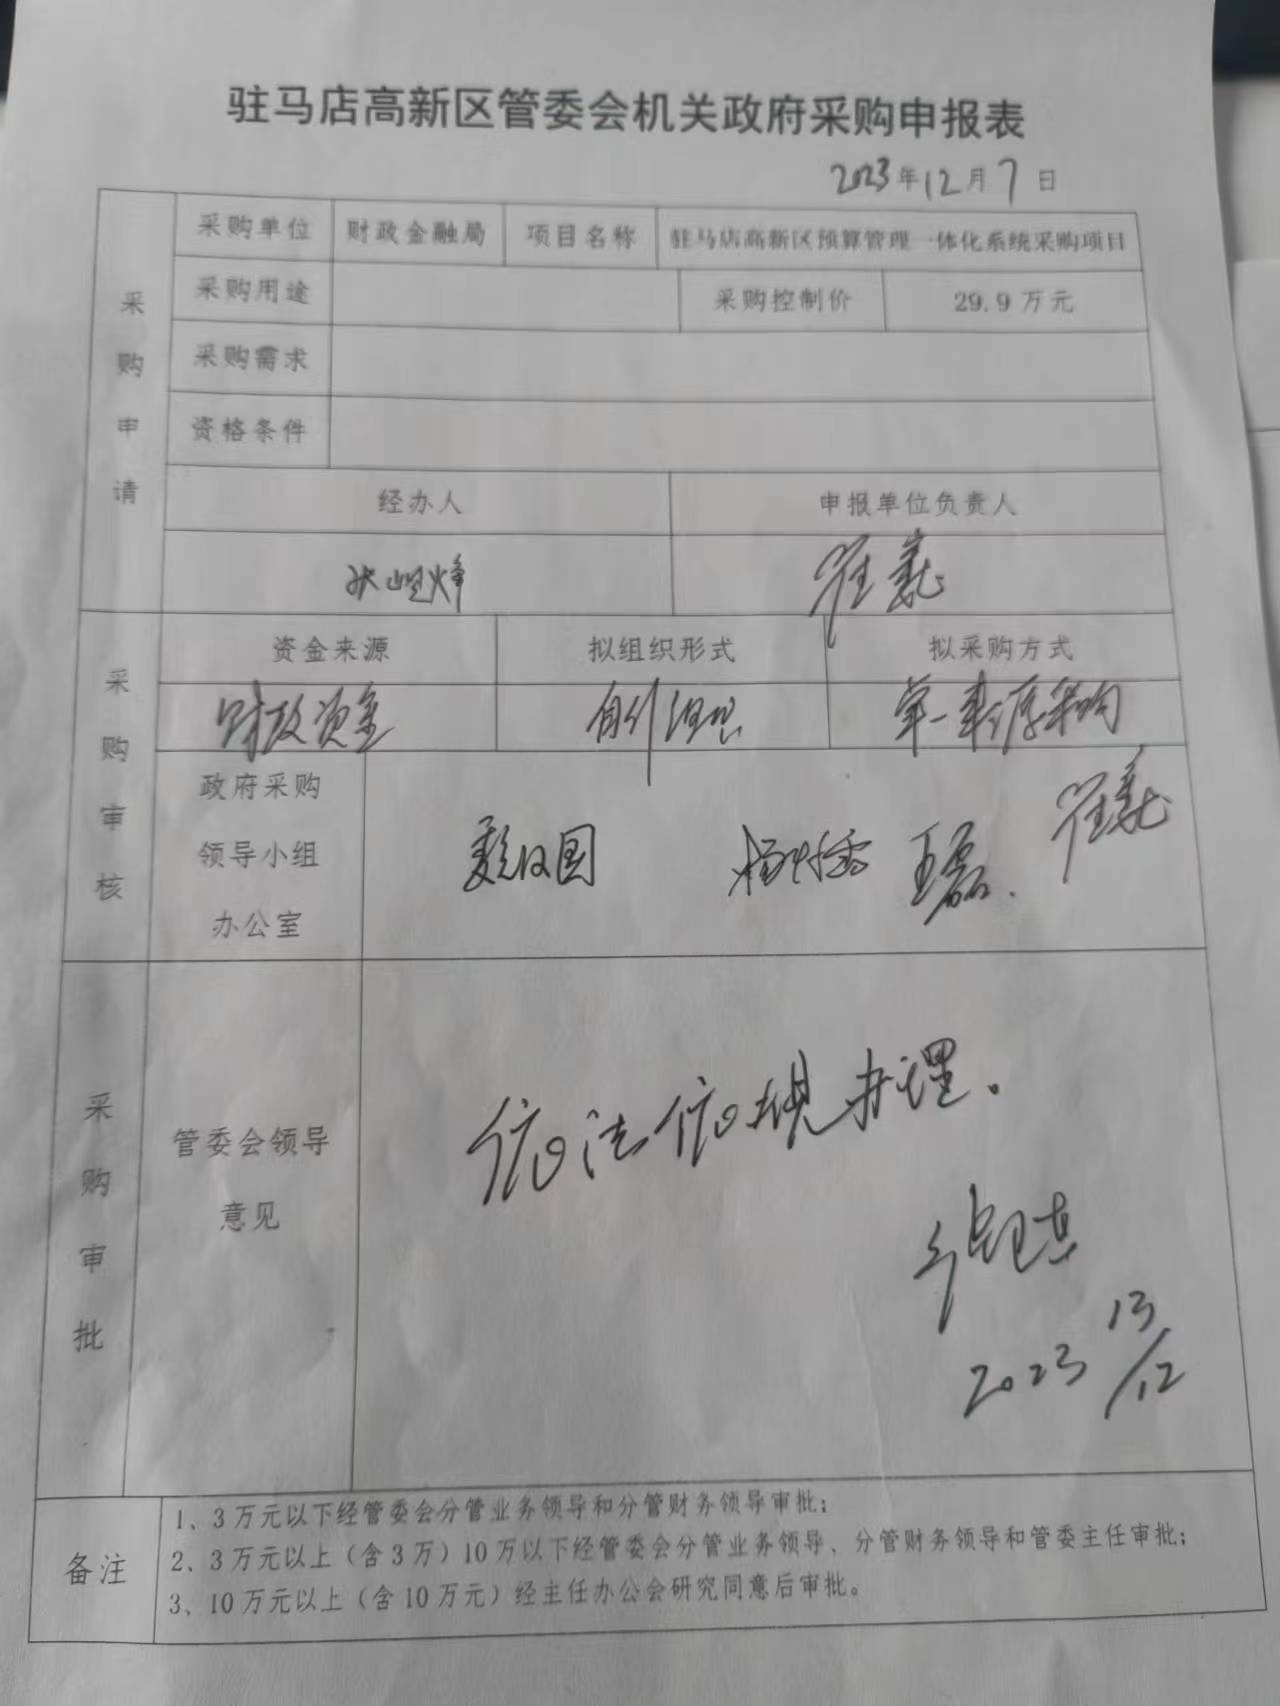 驻马店高新区管委会机关政府采购申报表
2023年12月7日
采购申请
采购单位 财政金融局 项目名称 驻马店高新区预算管理一体化系统采购项目
采购用途 采购控制价 29.9万元
采购需求
资格条件
经办人 申报单位负责人
采购审核
资金来源 拟组织形式 拟采购方式
财政资金 自行组织 单一来源采购
政府采购
领导小组
办公室
王磊
采购审批
管委会领导
意见
依法依规办理。
2023 13/12
备注
1、3万元以下经管委会分管业务领导和分管财务领导审批；
2、3万元以上（含3万）10万以下经管委会分管业务领导、分管财务领导和管委主任审批；
3、10万元以上（含10万元）经主任办公会研究同意后审批。